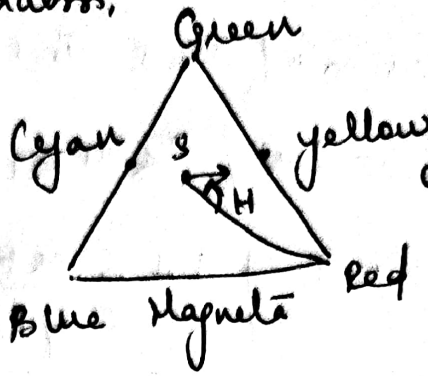 Green
Cyan
S
yellow
H
Red
Blue Magneta